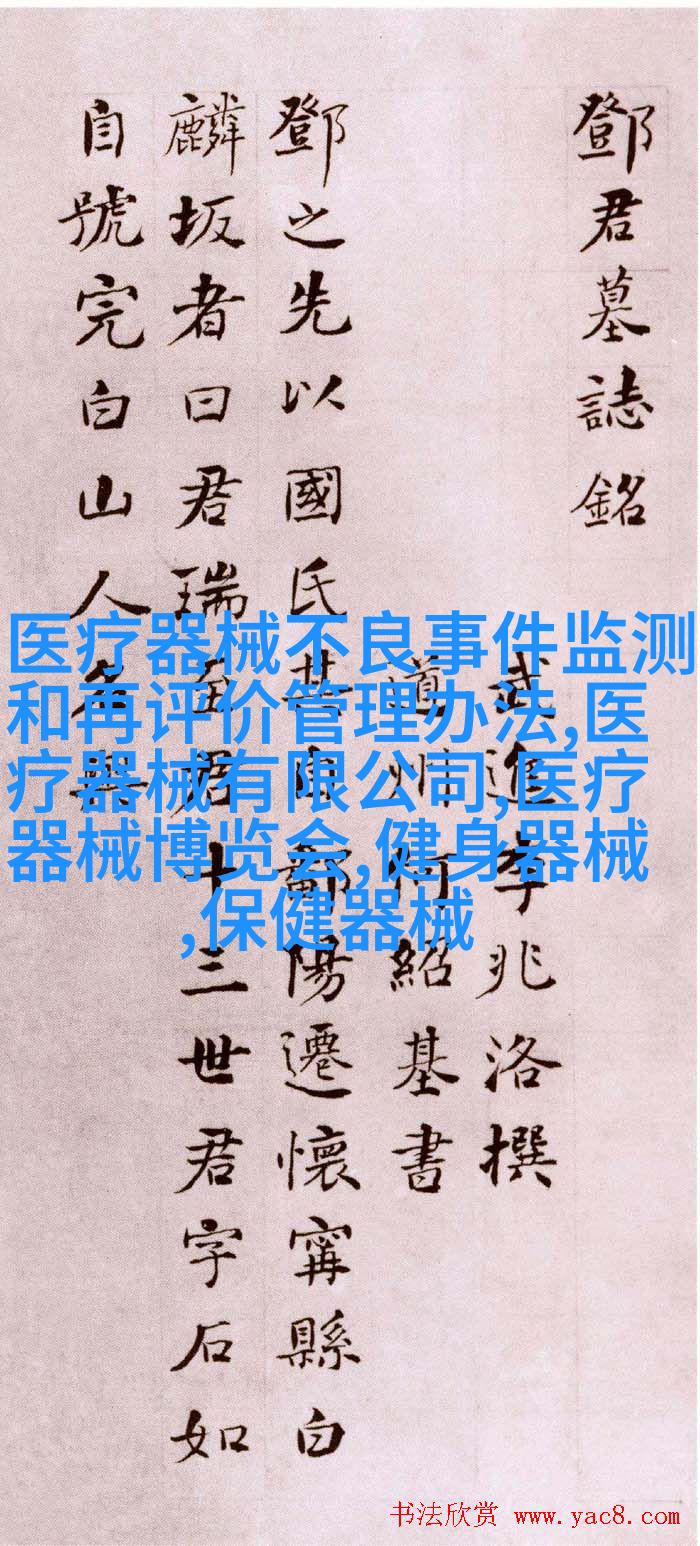 鄧君墓誌銘
武進李兆洛撰
道州何紹基書
鄧之先以國氏其自鄱陽遷懷甯縣白
麟坂者曰君瑞至君十三世君字石如
自號完白山人名
医疗器械不良事件监测
和再评价管理办法,医
疗器械有限公司,医疗
器械博览会,健身器械
,保健器械
书法欣赏 www.yac8.com